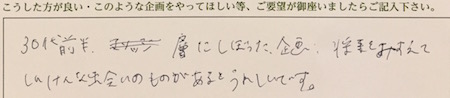 こうした方が良い・このような企画をやってほしい等、ご要望が御座いましたらご記入下さい。
30代前半、層にしぼった企画、将来をみすえて
しんけんな出会いのものがあるとうれしいです。